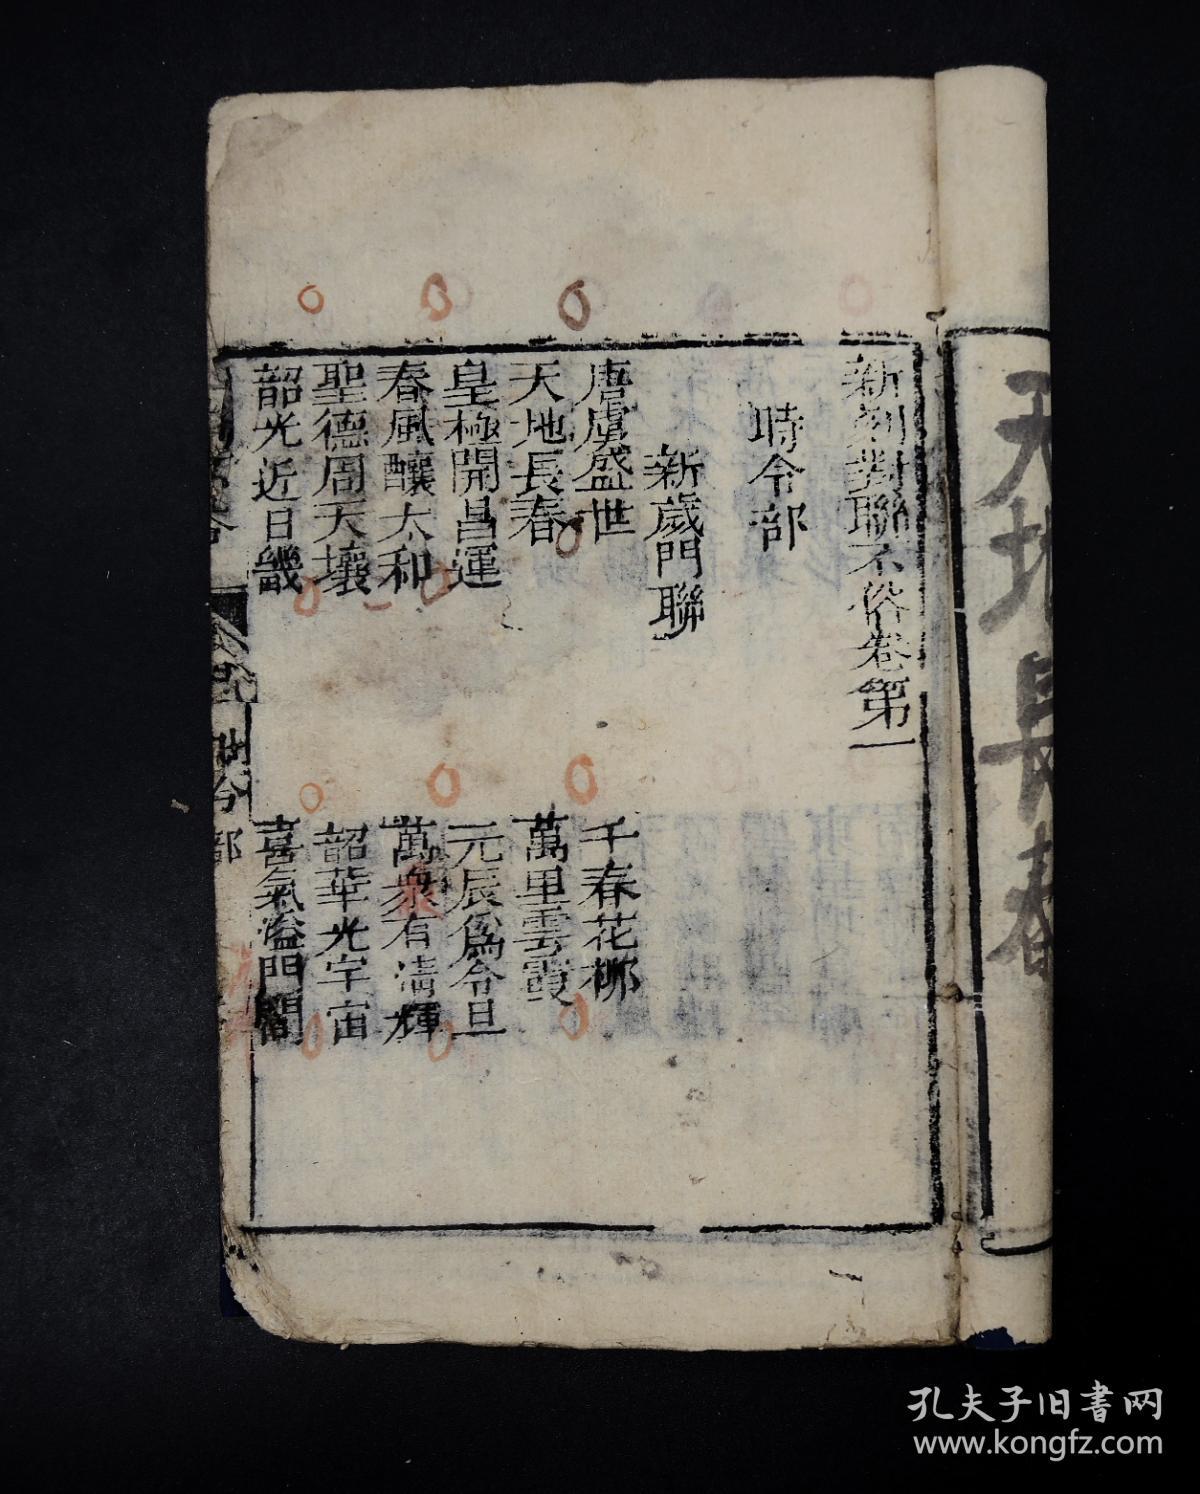 天地長春
新刻對聯不俗卷第一
時令部
新歲門聯
唐虞盛世
千春花柳
天地長春
萬里雲霞
皇極開昌運
元辰作令旦
春風釀太和
萬衆有清輝
聖德周天壤
韶華光宇宙
韶光近日畿
喜氣溢門闌
孔夫子旧书网
www.kongfz.com